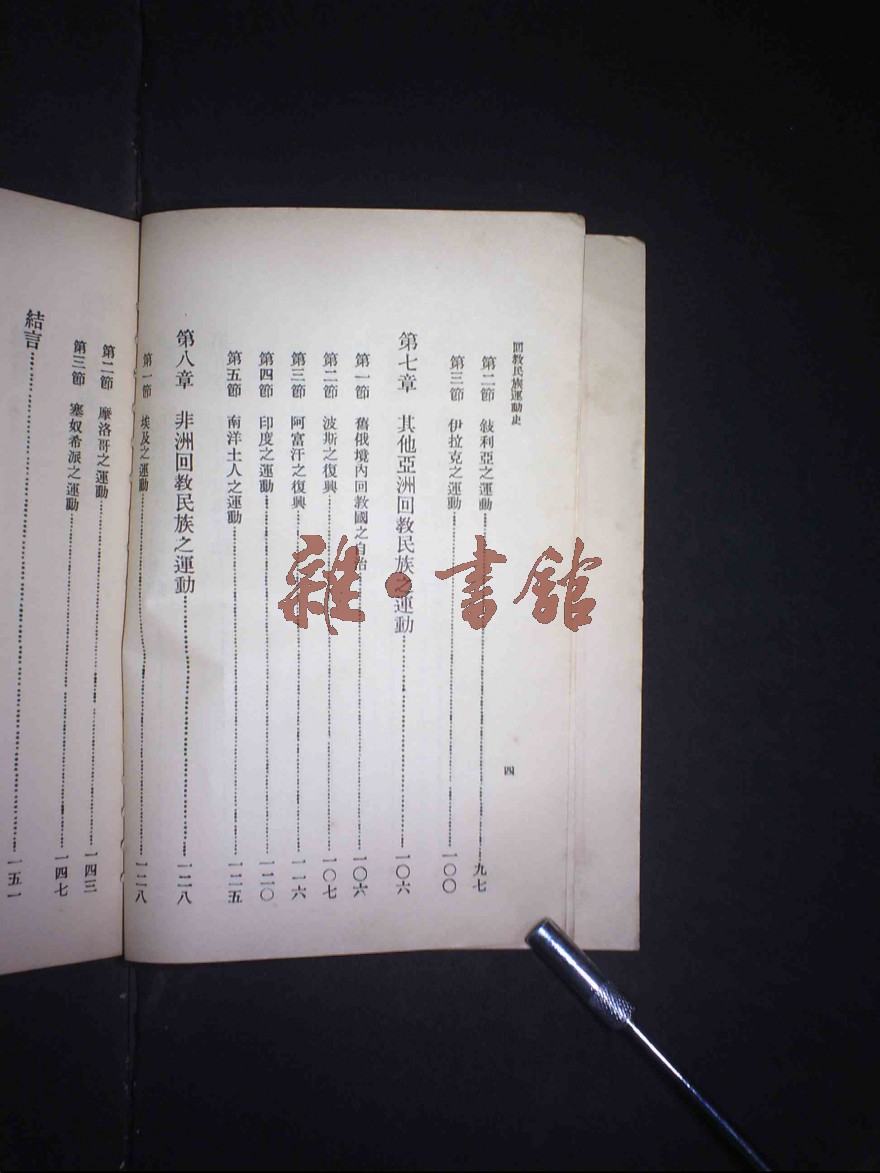 回教民族運動史
四
第二節　敍利亞之運動……九七
第三節　伊拉克之運動……一〇〇
第七章　其他亞洲回教民族之運動……一〇六
第一節　舊俄境內回教國之自治……一〇六
第二節　波斯之復興……一〇七
第三節　阿富汗之復興……一一六
第四節　印度之運動……一二〇
第五節　南洋土人之運動……一二五
第八章　非洲回教民族之運動……一二八
第一節　埃及之運動……一二八
第二節　摩洛哥之運動……一四三
第三節　塞奴希派之運動……一四七
結言……一五一
雜·書館